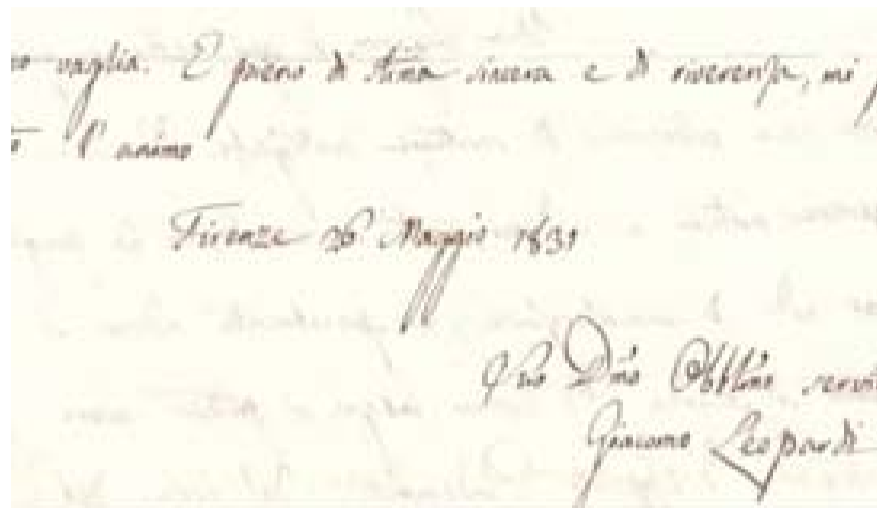 vaglia. E pieno di stima sincera e di riverenza, mi
l'animo
Firenze 26 Maggio 1831
Suo Dmo Obblmo servit
Giacomo Leopardi